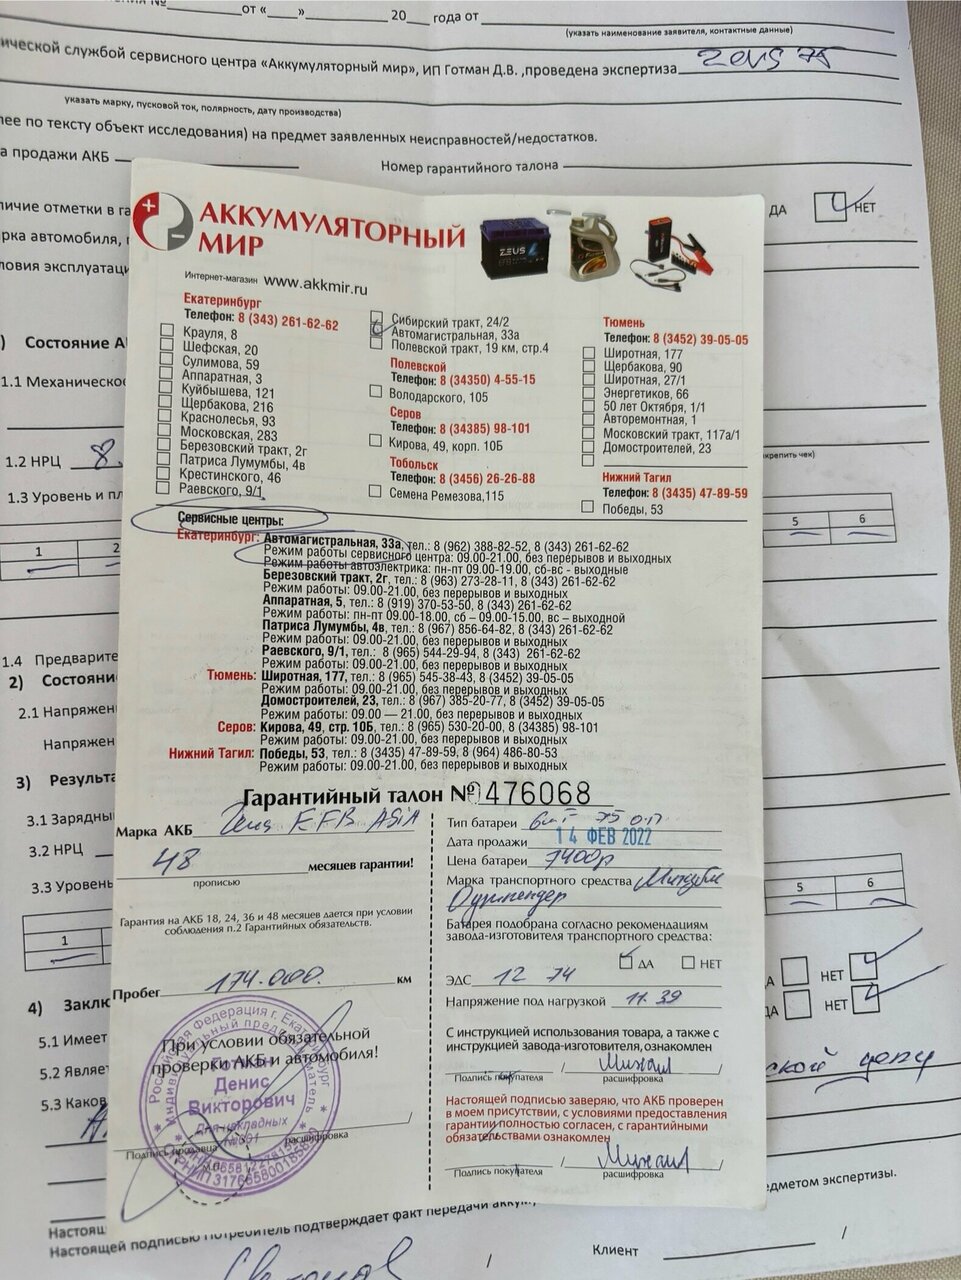 от «___»___ 20__ года от
(указать наименование заявителя, контактные данные)
ической службой сервисного центра «Аккумуляторный мир», ИП Готман Д.В. ,проведена экспертиза Zeus 75
указать марку, пусковой ток, полярность, дату производства)
лее по тексту объект исследования) на предмет заявленных неисправностей/недостатков.
а продажи АКБ
Номер гарантийного талона
личие отметки в га
ДА
НЕТ
рка автомобиля,
ловия эксплуатаци
АККУМУЛЯТОРНЫЙ
МИР
ZEUS
Интернет-магазин www.akkmir.ru
Екатеринбург
Телефон: 8 (343) 261-62-62
Крауля, 8
Шефская, 20
Сулимова, 59
Аппаратная, 3
Куйбышева, 121
Щербакова, 216
Краснолесья, 93
Московская, 283
Березовский тракт, 2г
Патриса Лумумбы, 4в
Крестинского, 46
Раевского, 9/1
Сибирский тракт, 24/2
Автомагистральная, 33а
Полевской тракт, 19 км, стр.4
Полевской
Телефон: 8 (34350) 4-55-15
Володарского, 105
Серов
Телефон: 8 (34385) 98-101
Кирова, 49, корп. 10Б
Тобольск
Телефон: 8 (3456) 26-26-88
Семена Ремезова,115
Тюмень
Телефон: 8 (3452) 39-05-05
Широтная, 177
Щербакова, 90
Широтная, 27/1
Энергетиков, 66
50 лет Октября, 1/1
Авторемонтная, 1
Московский тракт, 117а/1
Домостроителей, 23
Нижний Тагил
Телефон: 8 (3435) 47-89-59
Победы, 53
Сервисные центры:
Екатеринбург: Автомагистральная, 33а, тел.: 8 (962) 388-82-52, 8 (343) 261-62-62
Режим работы сервисного центра: 09.00-21.00, без перерывов и выходных
Режим работы автоэлектрика: пн-пт 09.00-19.00, сб-вс - выходные
Березовский тракт, 2г, тел.: 8 (963) 273-28-11, 8 (343) 261-62-62
Режим работы: 09.00-21.00, без перерывов и выходных
Аппаратная, 5, тел.: 8 (919) 370-53-50, 8 (343) 261-62-62
Режим работы: пн-пт 09.00-18.00, сб – 09.00-15.00, вс – выходной
Патриса Лумумбы, 4в, тел.: 8 (967) 856-64-82, 8 (343) 261-62-62
Режим работы: 09.00-21.00, без перерывов и выходных
Раевского, 9/1, тел.: 8 (965) 544-29-94, 8 (343) 261-62-62
Режим работы: 09.00-21.00, без перерывов и выходных
Тюмень: Широтная, 177, тел.: 8 (965) 545-38-43, 8 (3452) 39-05-05
Режим работы: 09.00-21.00, без перерывов и выходных
Домостроителей, 23, тел.: 8 (967) 385-20-77, 8 (3452) 39-05-05
Режим работы: 09.00 — 21.00, без перерывов и выходных
Серов: Кирова, 49, стр. 10Б, тел.: 8 (965) 530-20-00, 8 (34385) 98-101
Режим работы: 09.00-21.00, без перерывов и выходных
Нижний Тагил: Победы, 53, тел.: 8 (3435) 47-89-59, 8 (964) 486-80-53
Режим работы: 09.00-21.00, без перерывов и выходных
Гарантийный талон № 476068
Марка АКБ Zeus EFB ASIA
48 месяцев гарантии!
прописью
Гарантия на АКБ 18, 24, 36 и 48 месяцев дается при условии
соблюдения п.2 Гарантийных обязательств.
Пробег 174.000. км
При условии обязательной
проверки АКБ и автомобиля!
Российская Федерация г. Екатеринбург
Индивидуальный предприниматель
Денис
Викторович
Для накладных
№001
Подпись продавца
расшифровка
М.П.
Тип батареи 6ст 75 о.п
Дата продажи 14 ФЕВ 2022
Цена батареи 7400р
Марка транспортного средства Мицубиси
Аутлендер
Батарея подобрана согласно рекомендациям
завода-изготовителя транспортного средства:
ДА НЕТ
ЭДС 12 74
Напряжение под нагрузкой 11.39
С инструкцией использования товара, а также с
инструкцией завода-изготовителя, ознакомлен
Михаил
Подпись покупателя / расшифровка
Настоящей подписью заверяю, что АКБ проверен
в моем присутствии, с условиями предоставления
гарантии полностью согласен, с гарантийными
обязательствами ознакомлен
Михаил
Подпись покупателя / расшифровка
) Состояние А
1.1 Механическо
1.2 НРЦ 8,
крепить чек)
1.3 Уровень и пл
1 2 5 6
1.4 Предварите
2) Состояни
2.1 Напряжен
Напряжен
3) Результа
3.1 Зарядны
3.2 НРЦ
3.3 Уровень
1 5 6
4) Заклю
НЕТ
ДА НЕТ
5.1 Имеет
5.2 Являет
ской цепи
5.3 Каков
едметом экспертизы.
Настоящ
Настоящей подписью Потребитель подтверждает факт передачи акку
/ Клиент /